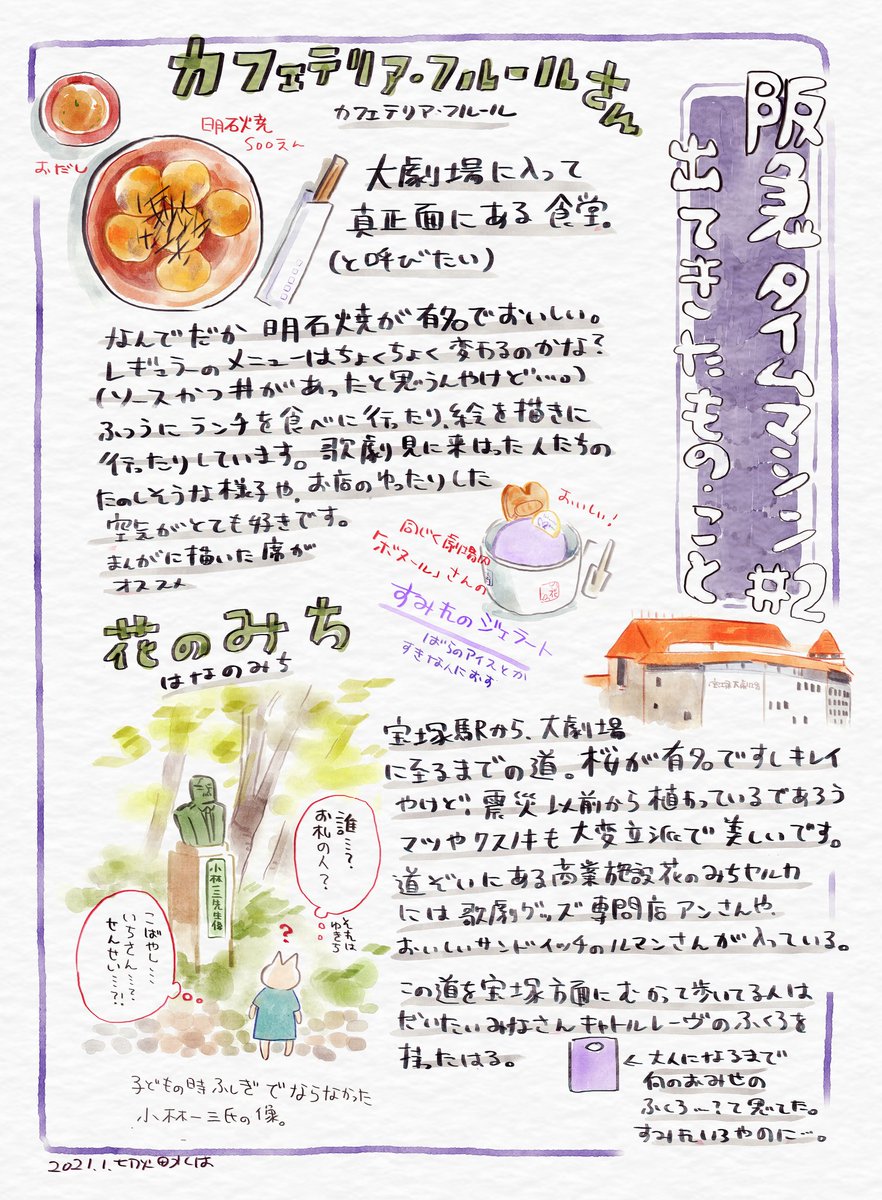 阪急タイムマシン#2
出てきたもの・こと
カフェテリア・フルールさん
カフェテリア・フルール
おだし
明石焼
500えん
大劇場に入って
真正面にある食堂。
(と呼びたい)
なんでだか 明石焼が有名でおいしい。
レギュラーのメニューはちょくちょく変わるのかな?
(ソースかつ丼があったと思うんやけど…。)
ふつうにランチを食べに行ったり、絵を描きに
行ったりしています。歌劇見に来はった人たちの
たのしそうな様子や、お店のゆったりした
空気がとても好きです。
まんがに描いた席が
オススメ
おいしい!
同じく劇場内
「ボヌール」さんの
すみれのジェラート
ばらのアイスとか
すきなんにおす
花のみち
はなのみち
宝塚大劇場
宝塚駅から、大劇場
に至るまでの道。桜が有名ですしキレイ
やけど!震災以前から植わっているであろう
マツやクスノキも大変立派で美しいです。
道ぞいにある商業施設花のみちセルカ
には歌劇グッズ専門店アンさんや、
おいしいサンドイッチのルマンさんが入っている。
この道を宝塚方面にむかって歩いてる人は
だいたいみなさんキャトルレーヴのふくろを
持ったはる。
←大人になるまで
何のおみせの
ふくろ…?て思てた。
すみれいろやのに…。
誰…?
お札の人?
それは
ゆきち
小林一三先生像
こばやし…
いちさん…?
せんせい…?!
?
子どもの時ふしぎでならなかった
小林一三氏の像。
2021.1.切畑水葉